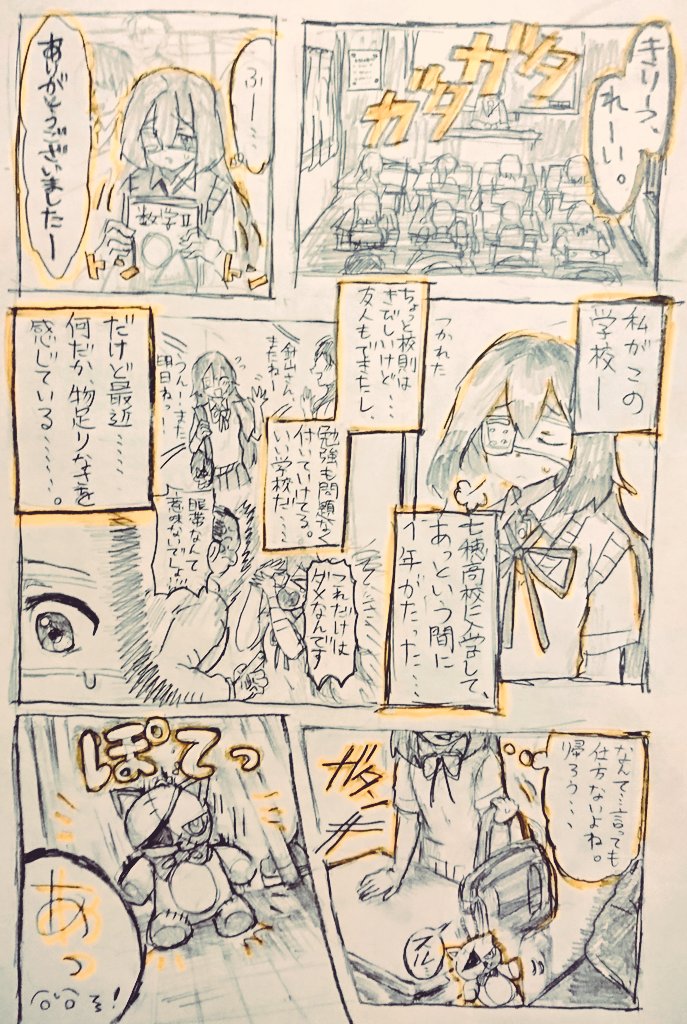 きりーつ、
れーい。
ガタ
ガタ
ふー…
数学II
トン
トン
ありがとうございましたー
私がこの
学校ー
つかれた
七穂高校に入学して、
あっという間に
1年がたった…
ちょっと校則は
きびしいけど…
友人もできたし、
針山さん
またねー
うんー、また
明日ねー
勉強も問題なく
付いていけてる。
いい学校だ…
眼帯なんて
意味ないでしょ!
これだけは
ダメなんです
だけど最近……
何だか物足りなさを
感じている……。
なんて…言っても
仕方ないよね。
帰ろう…
ガタン
ズルッ
ぽてっ
あっ